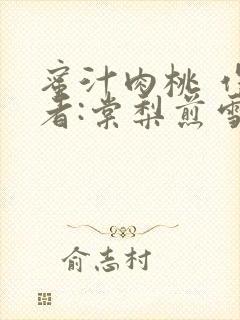 蜜汁肉桃
者:棠梨煎雪
俞志村